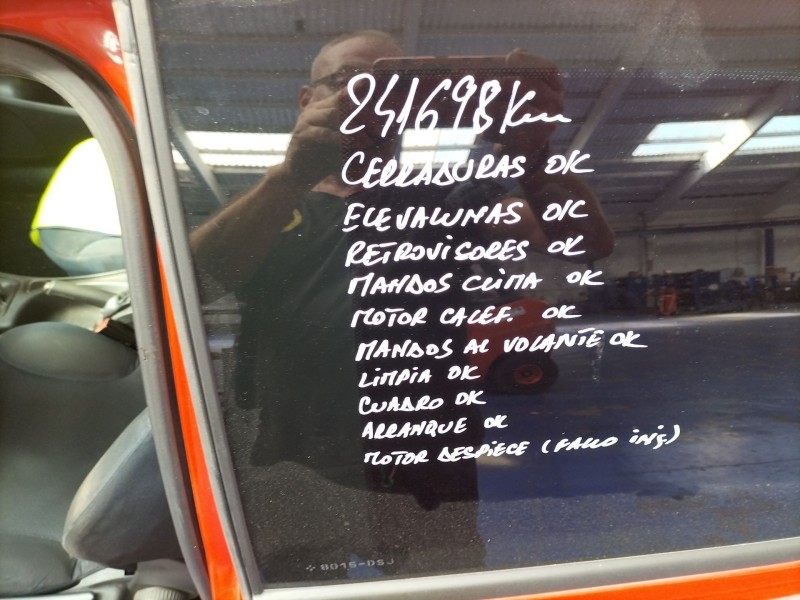 241698 Km
CERRADURAS OK
ELEVALUNAS OK
RETROVISORES OK
MANDOS CLIMA OK
MOTOR CALEF. OK
MANDOS AL VOLANTE OK
LIMPIA OK
CUADRO OK
ARRANQUE OK
MOTOR DESPIECE (FALLO INJ)
8015-DSJ